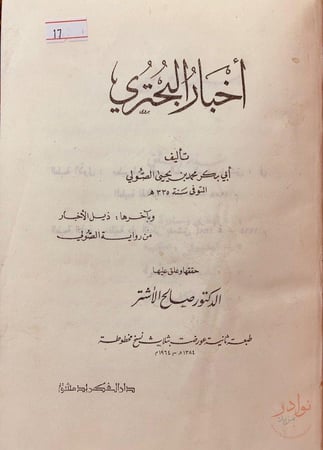 17
أخبار البحتري
تأليف
أبي بكر محمد بن يحيى الصولي
المتوفى سنة ٣٣٥ هـ
وبآخرها: ذيل الأخبار
من رواية الصولي
حققها وعلق عليها
الدكتور صالح الأشتر
طبعة ثانية عورضت بثلاث نسخ مخطوطة
١٣٨٤ هـ - ١٩٦٤ م
دار الفكر بدمشق
نوادر